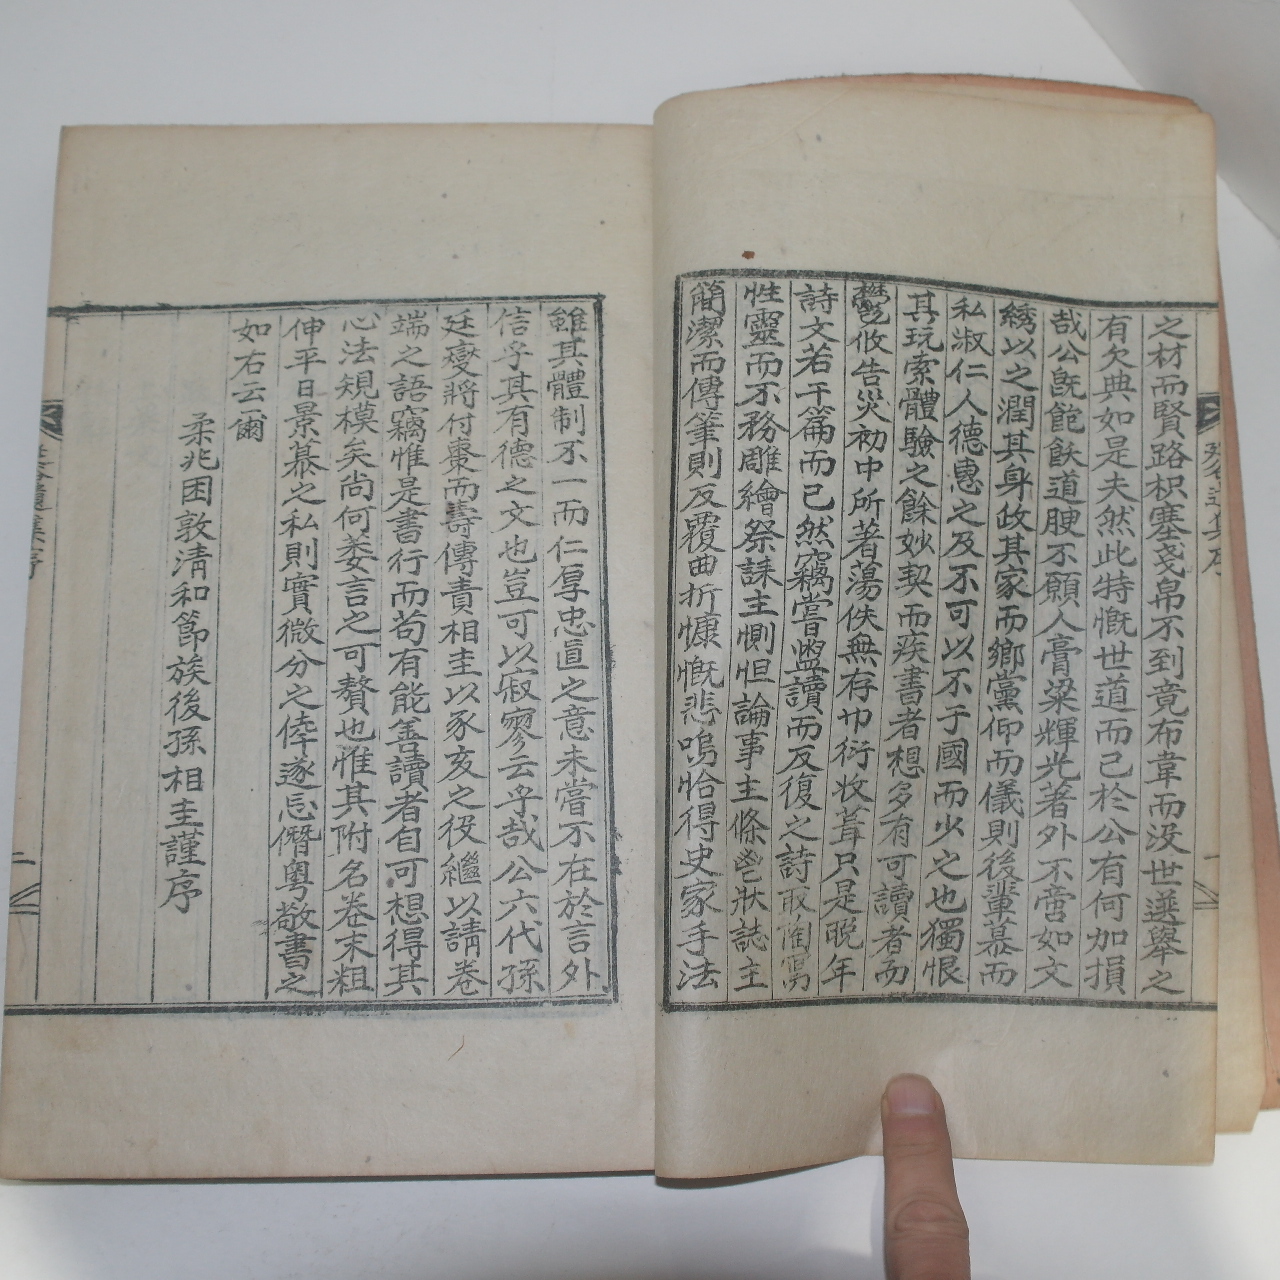 之材而賢路枳塞戔帛不到竟布韋而沒世選舉之
有欠典如是夫然此特慨世道而已於公有何加損
哉公旣飽飫道腴不願人膏粱輝光著外不啻如文
綉以之潤其身政其家而鄉黨仰而儀則後輩慕而
私淑仁人德惠之及不可以不于國而少之也獨恨
其玩索體驗之餘妙契而疾書者想多有可讀者而
鬱攸告災初中所著蕩佚無存巾衍收葺只是晩年
詩文若干篇而已然竊嘗盥讀而反復之詩取陶寫
性靈而不務雕繪祭誄主惻怛論事主條鬯狀誌主
簡潔而傳筆則反覆曲折慷慨悲嗚恰得史家手法
雖其體制不一而仁厚忠直之意未嘗不在於言外
信乎其有德之文也豈可以寂寥云乎哉公六代孫
廷燮將付棗而壽傳責相圭以豕亥之役繼以請卷
端之語竊惟是書行而苟有能善讀者自可想得其
心法規模矣尚何萎言之可贅也惟其附名卷末粗
伸平日景慕之私則實微分之倖遂忘僭粤敬書之
如右云爾
柔兆困敦淸和節族後孫相圭謹序